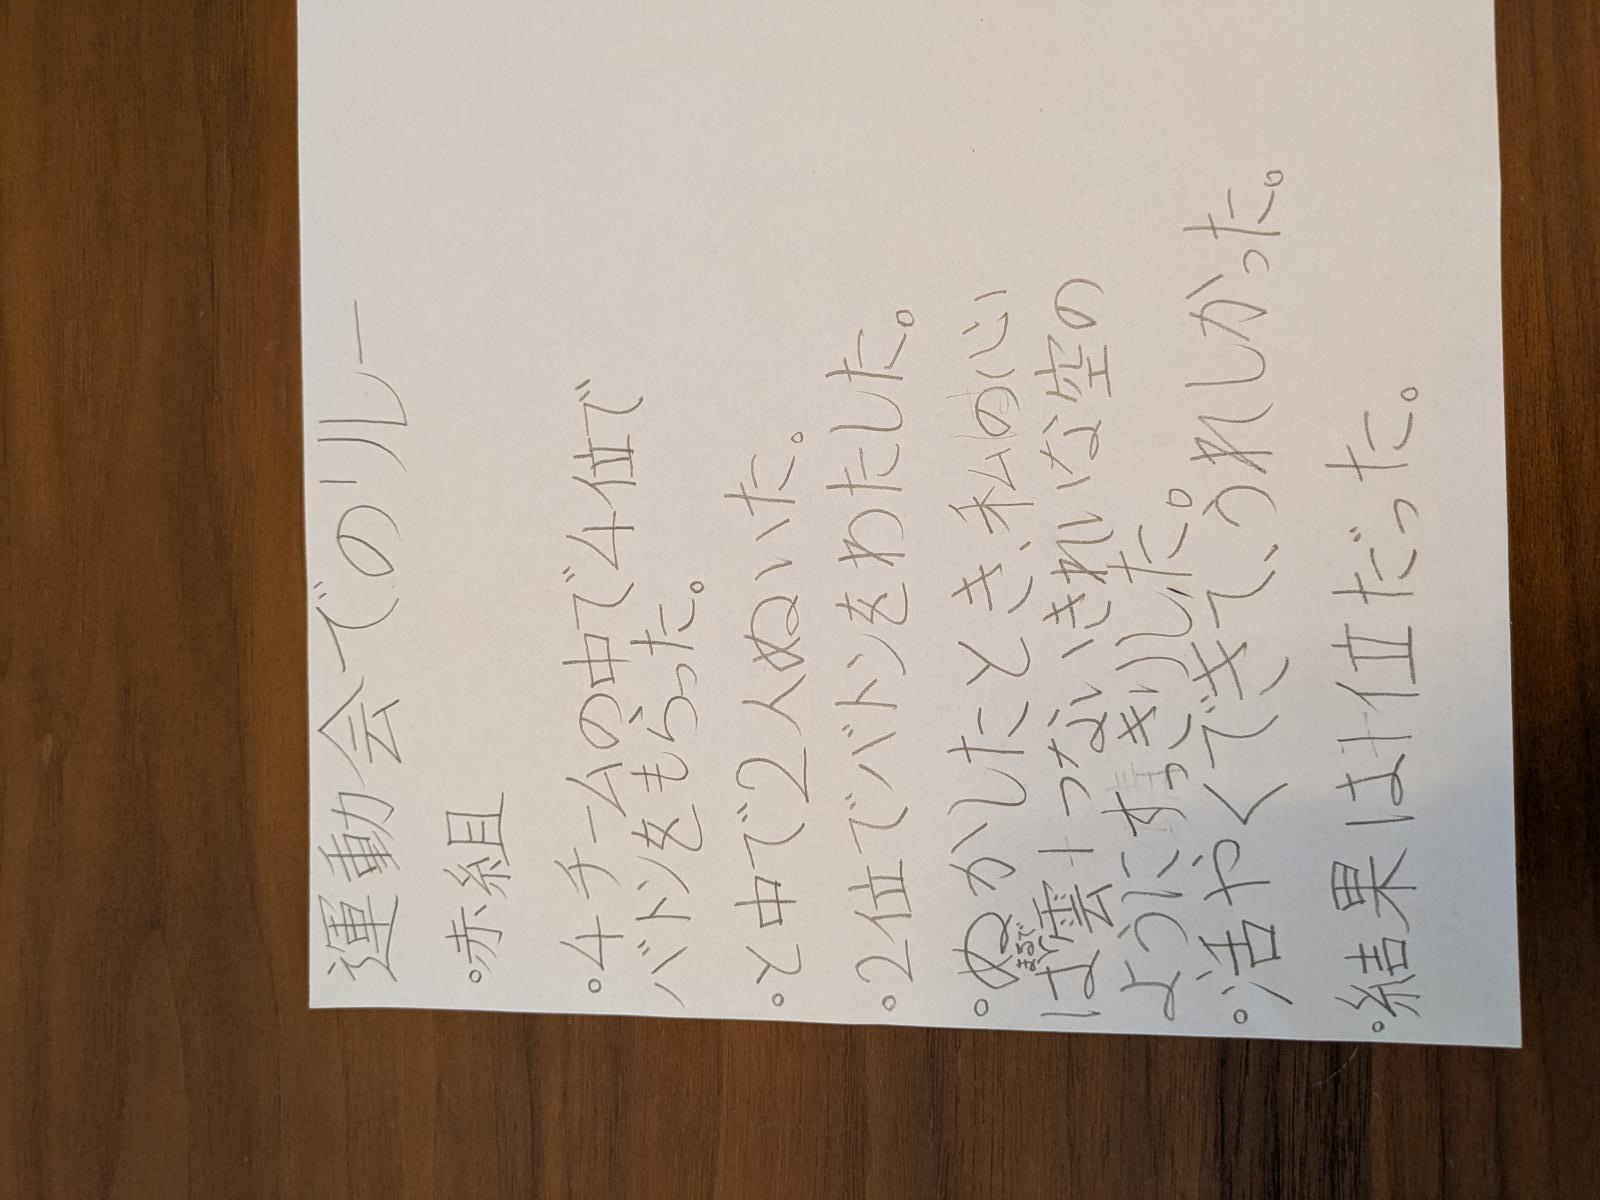 運動会でのリレー
。赤組
。4チームの中で4位で
バトンをもらった。
。と中で2人ぬいた。
。2位でバトンをわたした。
。ぬかしたとき、私の心
はまるで雲1つないきれいな空の
ようにすっきりした。
。活やくできて、うれしかった。
。結果は1位だった。